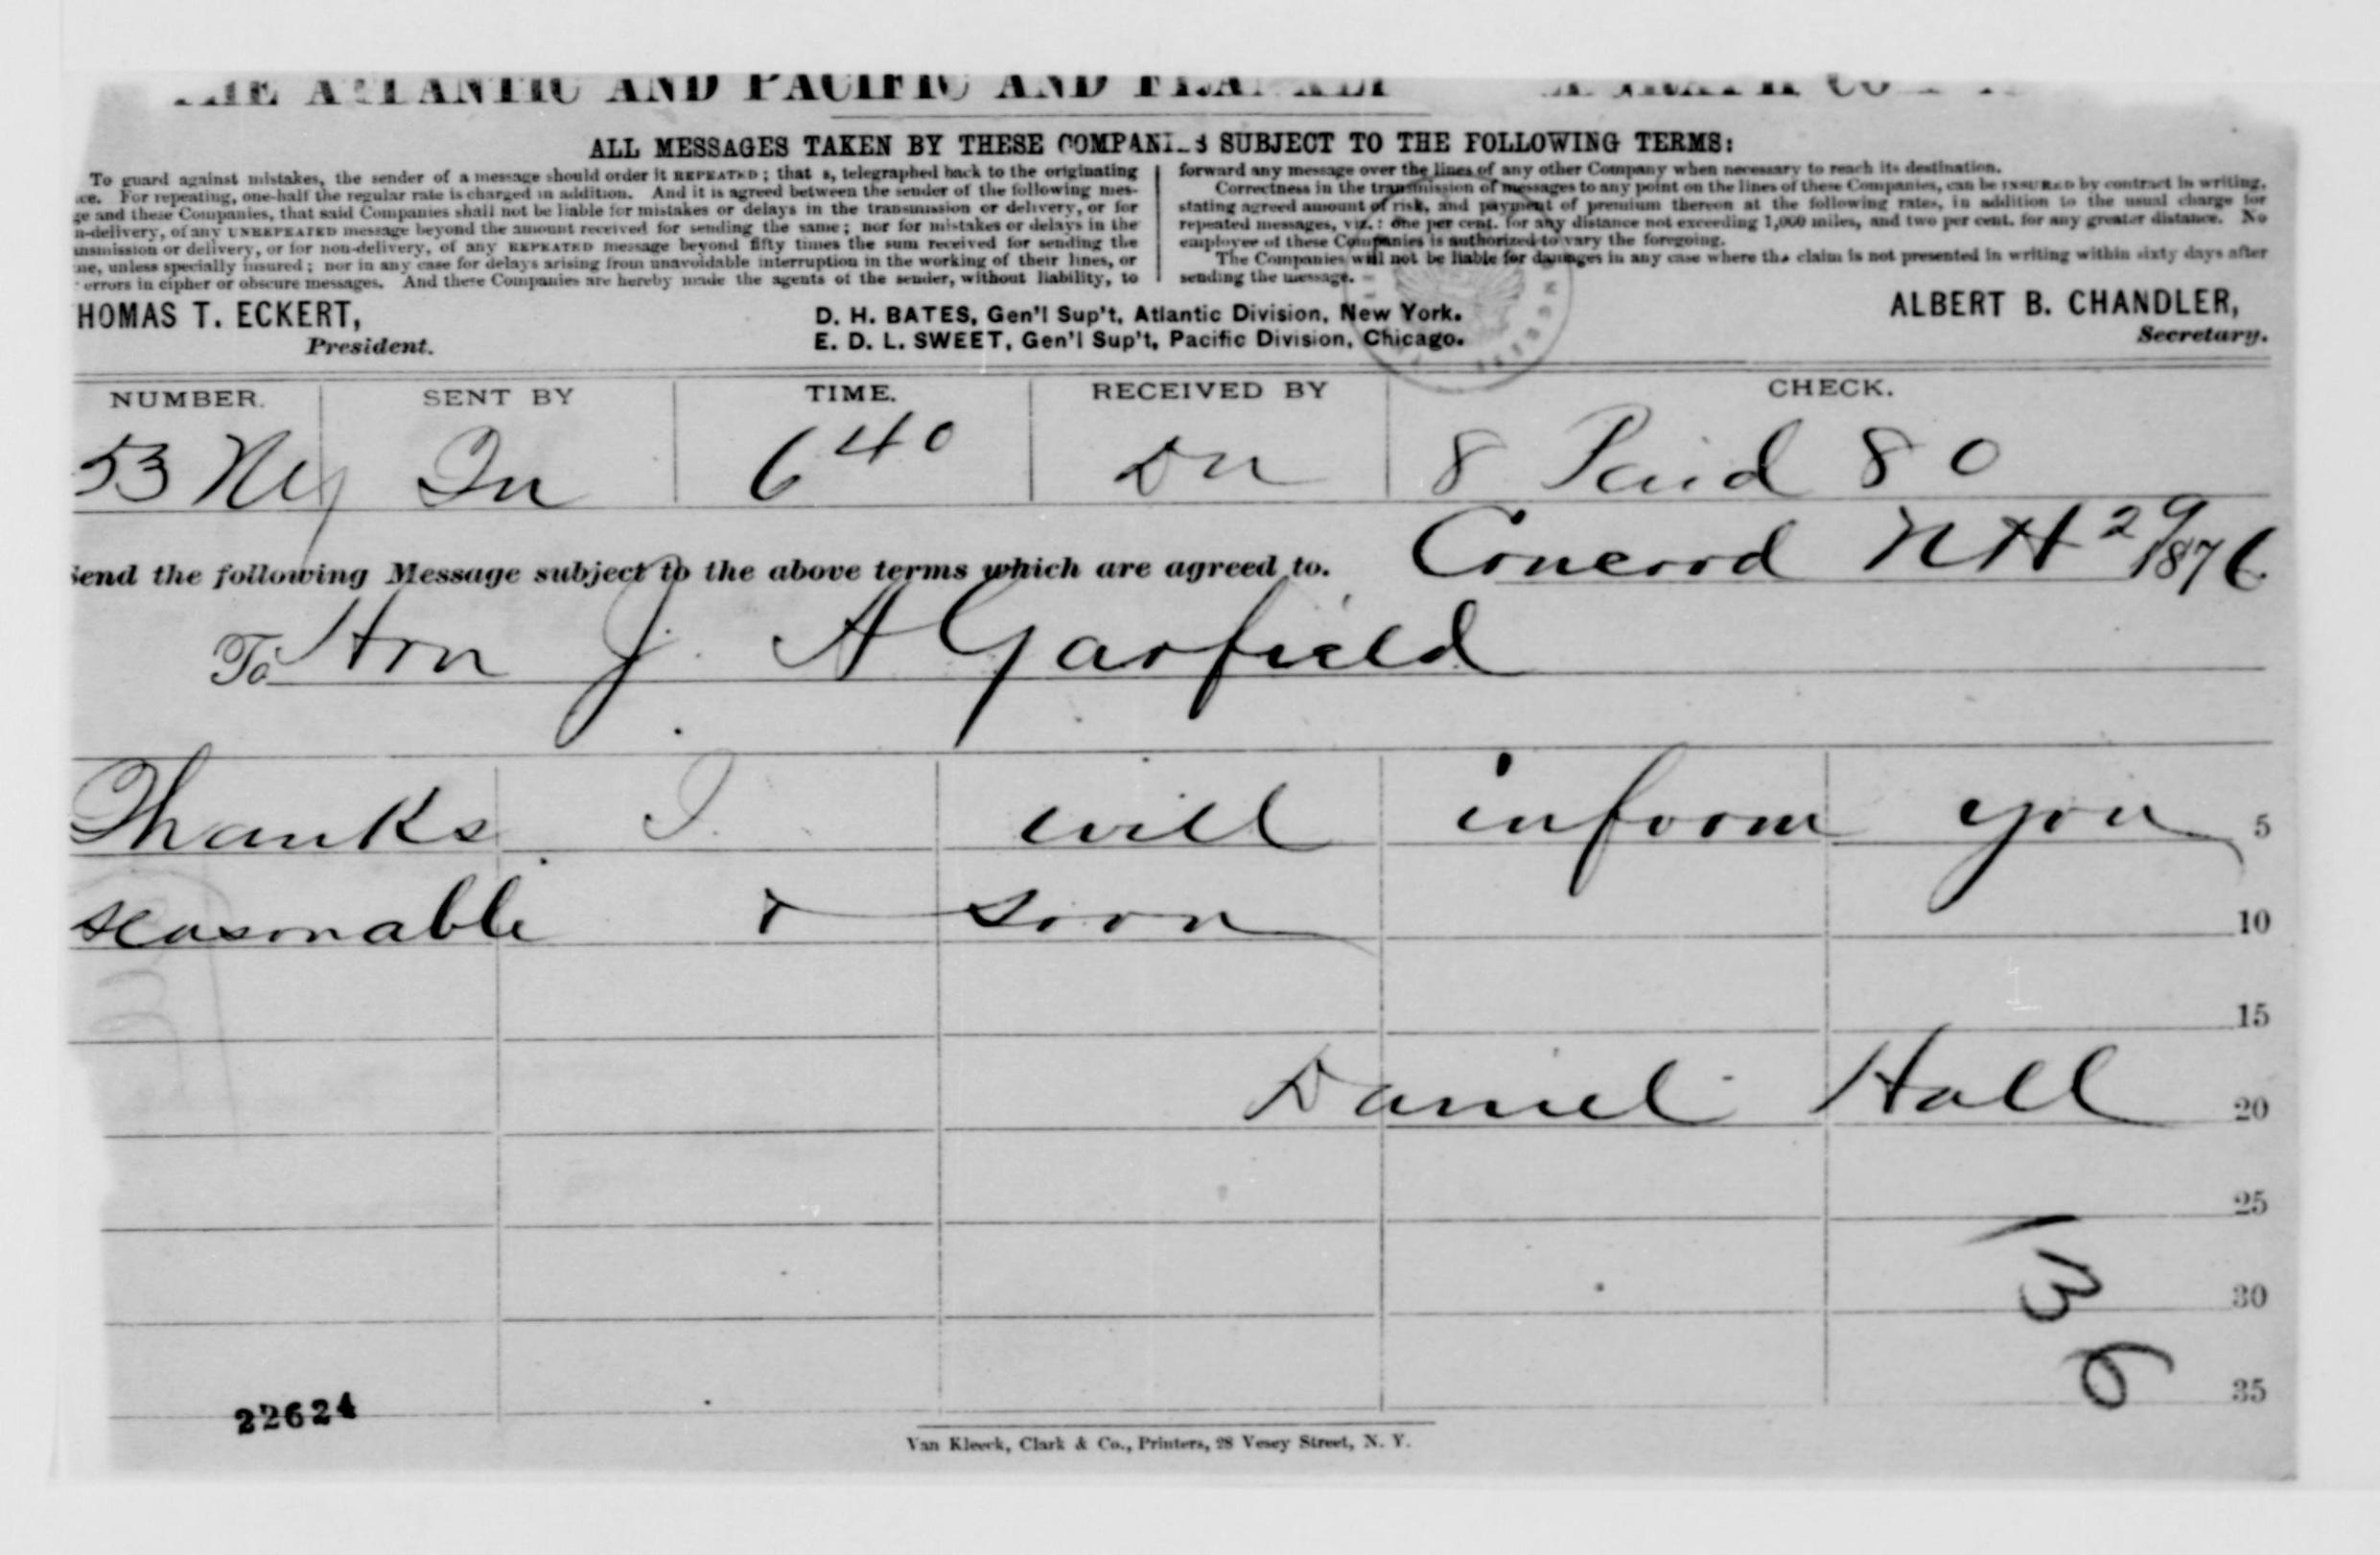 THE ATLANTIC AND PACIFIC AND
ALL MESSAGES TAKEN BY THESE COMPANIES SUBJECT TO THE FOLLOWING TERMS:
To guard against mistakes, the sender of a message should order it REPEATED; that s, telegraphed back to the originating
ce. For repeating, one-half the regular rate is charged in addition. And it is agreed between the sender of the following mes-
ge and these Companies, that said Companies shall not be liable for mistakes or delays in the transmission or delivery, or for
n-delivery, of any UNREPEATED message beyond the amount received for sending the same; nor for mistakes or delays in the
ansmission or delivery, or for non-delivery, of any REPEATED message beyond fifty times the sum received for sending the
me, unless specially insured; nor in any case for delays arising from unavoidable interruption in the working of their lines, or
errors in cipher or obscure messages. And these Companies are hereby made the agents of the sender, without liability, to
forward any message over the lines of any other Company when necessary to reach its destination.
Correctness in the transmission of messages to any point on the lines of these Companies, can be INSURED by contract in writing,
stating agreed amount of risk, and payment of premium thereon at the following rates, in addition to the usual charge for
repeated messages, viz.: one per cent. for any distance not exceeding 1,000 miles, and two per cent. for any greater distance. No
employee of these Companies is authorized to vary the foregoing.
The Companies will not be liable for damages in any case where the claim is not presented in writing within sixty days after
sending the message.
HOMAS T. ECKERT,
President.
D. H. BATES, Gen'l Sup't, Atlantic Division, New York.
E. D. L. SWEET, Gen'l Sup't, Pacific Division, Chicago.
ALBERT B. CHANDLER,
Secretary.
NUMBER. SENT BY TIME. RECEIVED BY CHECK.
53 Ny 6 40 Dn 8 Paid 80
Send the following Message subject to the above terms which are agreed to. Concord NH 29 1876
To Hon J. A Garfield
Thanks I will inform you 5
seasonable & soon 10
15
Daniel Hall 20
25
30
35
136
22624
Van Kleeck, Clark & Co., Printers, 28 Vesey Street, N. Y.